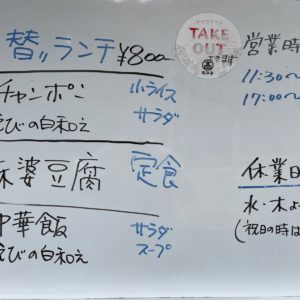 替ランチ ¥800
チャンポン 小ライス
えびの白和え サラダ
麻婆豆腐 定食
中華飯 サラダ
えびの白和え スープ
TAKE
OUT
できます
営業時
11:30〜
17:00〜
休業日
水・木よ
(祝日の時は